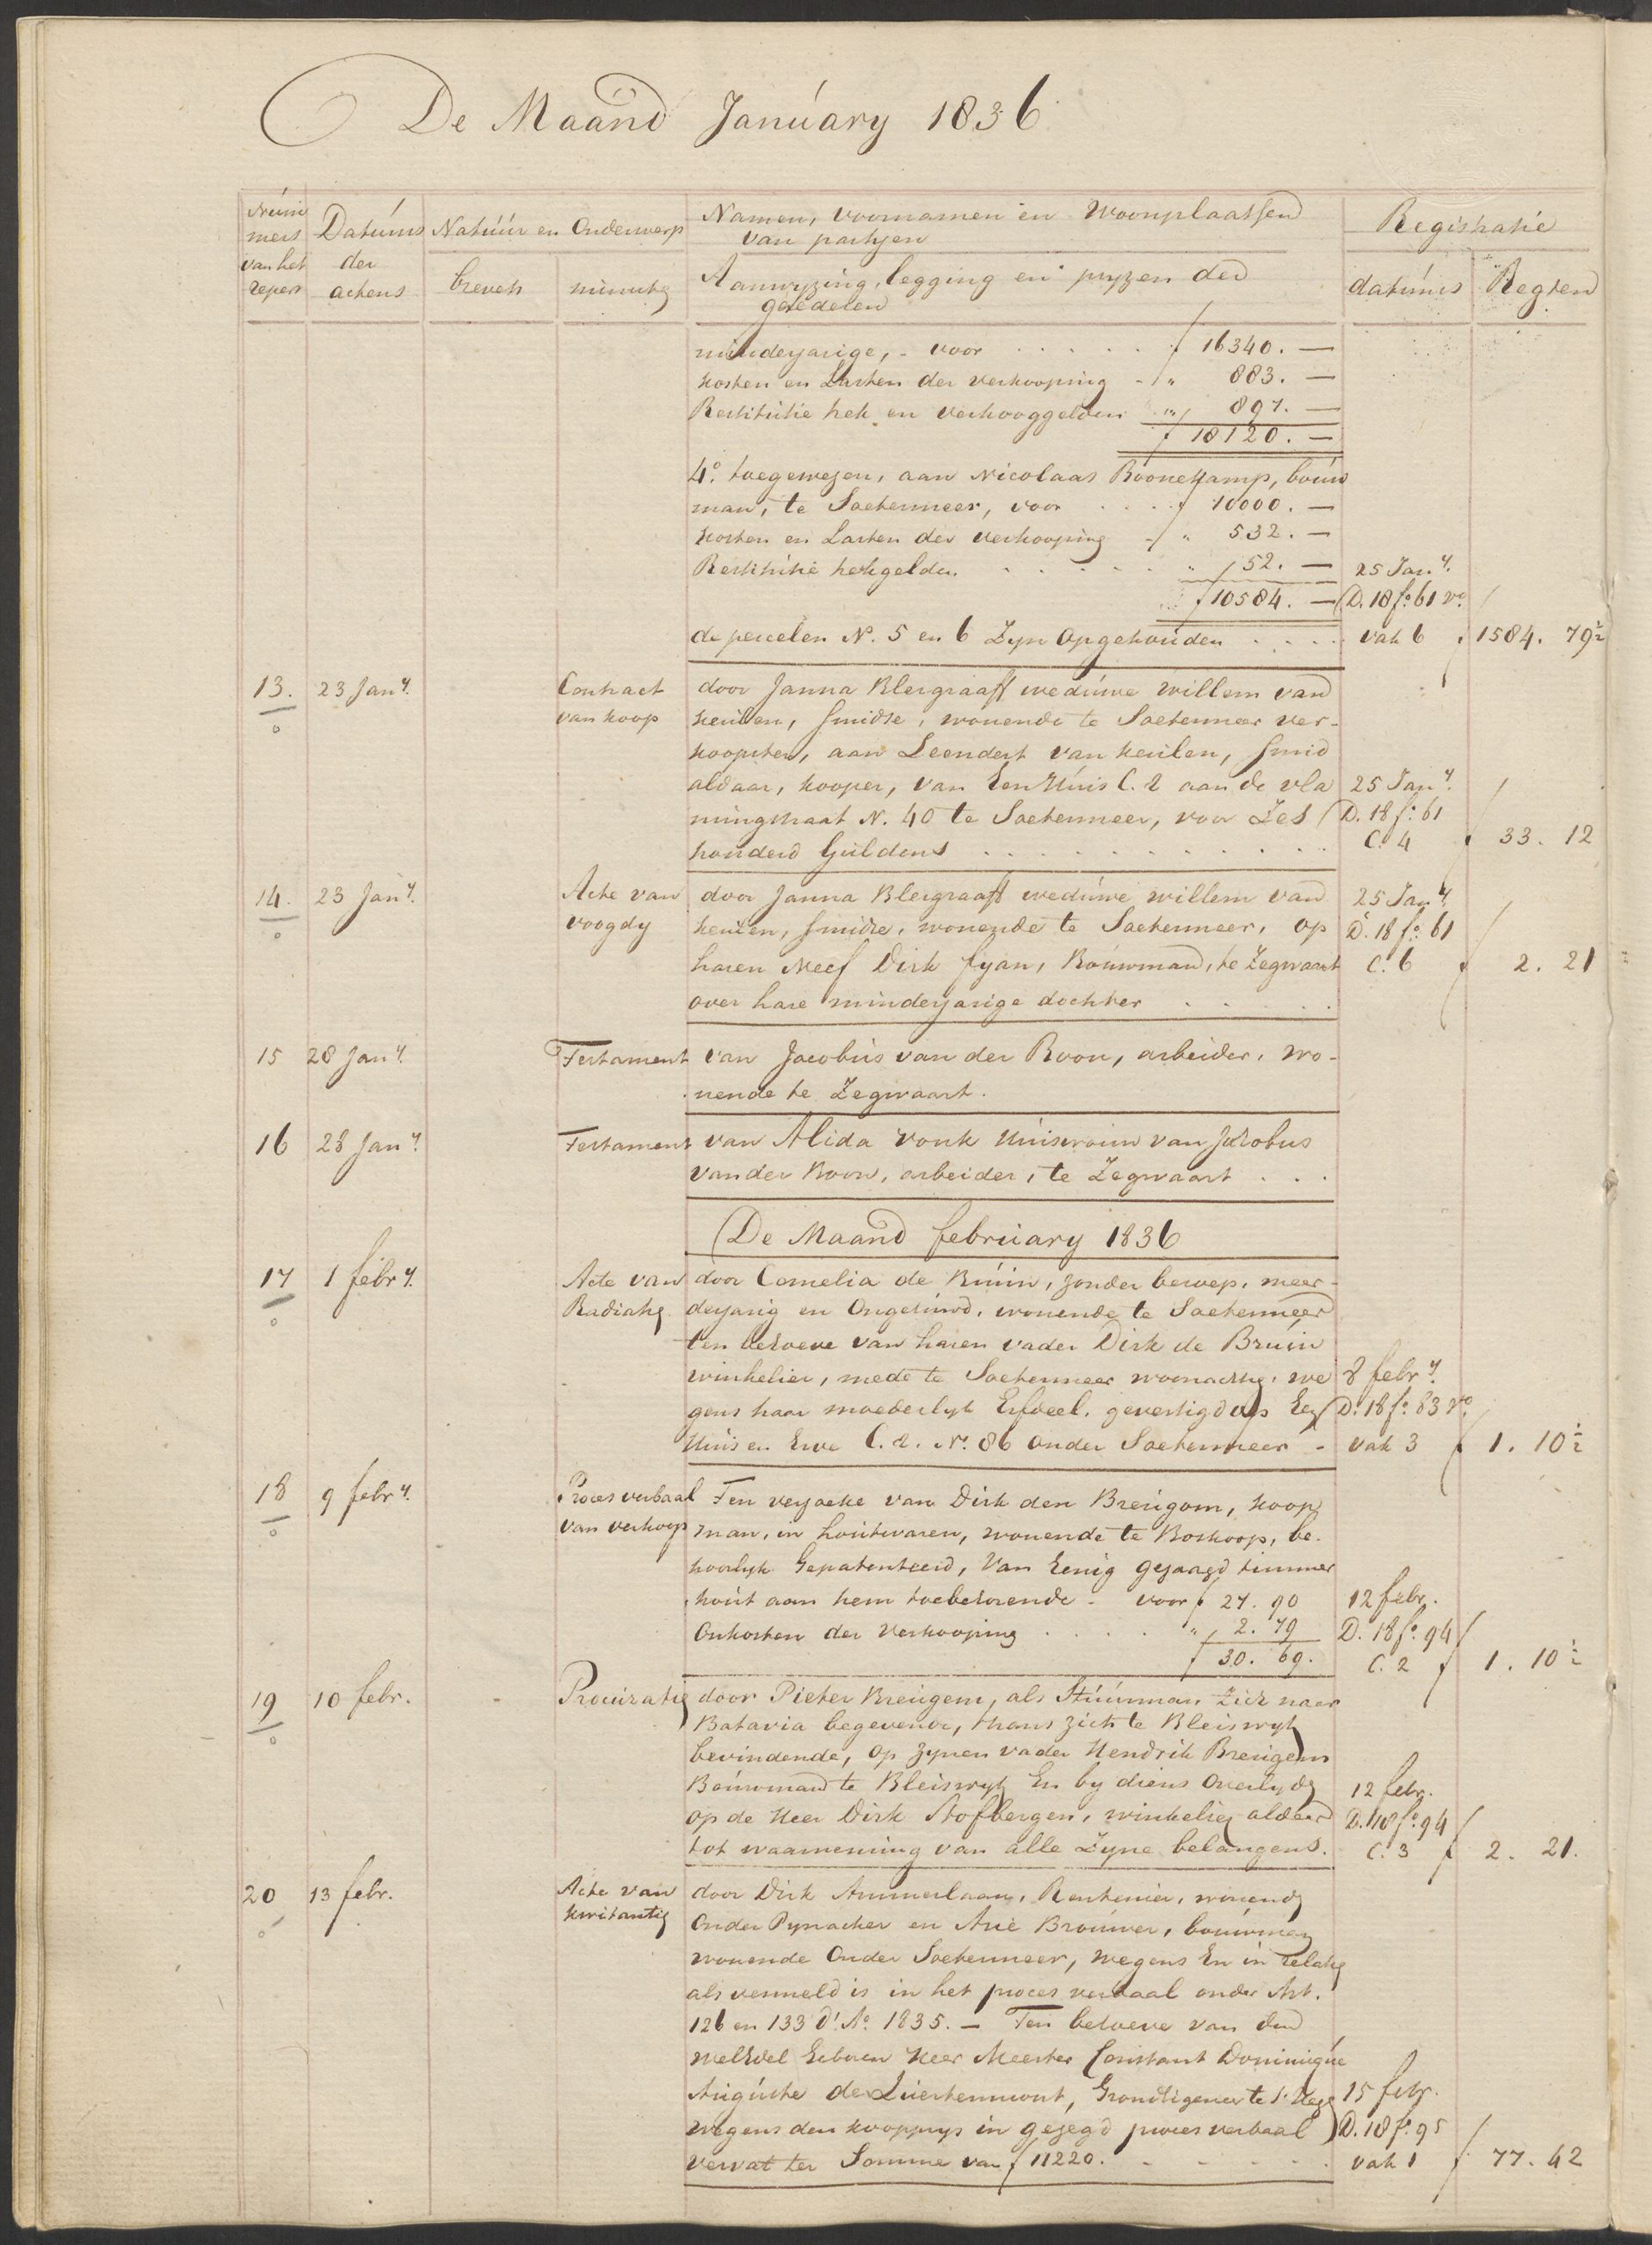 De Maand January 1836
Num
mers
van het
repert
Datums
der
actens
Natuur en Onderwerp
brevets
minuten
Namen, voornamen en Woonplaatsen
van partijen
Aanwyzing, legging en pryzen der
goederen
Registratie
datums
Regten
minderjarige, - voor . . . . . . f 16340. —
kosten en Lasten der verkooping - " 883. —
Restitutie hek en verhooggelden " 897. —
f 18120. —
4o. toegewezen, aan Nicolaas Boonekamp, bouw
man, te Soetermeer, voor . . . . f 10000. —
kosten en Lasten der verkooping - " 532. —
Restitutie hekgelden . . . . . " 52. — 25 Jany.
f 10584. — D. 18 fo. 61 vo.
de percelen No. 5 en 6 Zyn Opgehouden . . . . vak 6 f 1584. 79½
13. 23 Jany. Contract door Janna Bleigraaff weduwe willem van
van koop keulen, smidse, wonende te Soetermeer ver-
koopster, aan Leendert van keulen, smid
aldaar, kooper, van Een Huis C. 2 aan de vla 25 Jany.
mingstraat N. 40 te Soetermeer, voor Zes D. 18 fo. 61
honderd Guldens . . . . . . . . . . C. 4 f 33. 12
14. 23 Jany. Acte van door Janna Bleigraaff weduwe willem van 25 Jany.
voogdy keulen, smidse, wonende te Soetermeer, op D. 18 fo. 61
haren Neef Dirk fyan, Bouwman, te Zegwaart C. 6 f 2. 21
over hare minderjarige dochter . . . . .
15 28 Jany. Testament van Jacobus van der Boon, arbeider, wo-
nende te Zegwaart.
16 28 Jany. Testament van Alida vonk Huisvrouw van Jacobus
van der Boon, arbeider, te Zegwaart . . .
De Maand february 1836
17 1 febry. Acte van door Cornelia de Bruin, zonder beroep, meer-
Radiatie derjarig en Ongehuwd, wonende te Soetermeer
ten behoeve van haren vader Dirk de Bruin
winkelier, mede te Soetermeer woonachtig, we 8 febry.
gens haar moederlyk Erfdeel. gevestigd op Een D. 18 fo. 83 vo.
Huis en Erve C. 2. No. 86 onder Soetermeer - vak 3 f 1. 10½
18 9 febry. Proces verbaal Ten verzoeke van Dirk den Breugom, koop
van verkoop man, in houtwaren, wonende te Boskoop, be-
hoorlyk Gepatenteerd, Van Eenig gezaagd timmer
hout aan hem toebehorende - voor f 27. 90 12 febr.
Onkosten der Verkooping . . . . . " 2. 79 D. 18 fo. 94
f 30. 69. C. 2 f 1. 10½
19 10 febr. Procuratie door Pieter Breugem, als Stuurman Zich naar
Batavia begevende, thans zich te Bleiswyk
bevindende, op zynen vader Hendrik Breugem
Bouwman te Bleiswyk En by diens Overlyden 12 febr.
op de Heer Dirk Stofbergen, winkelier aldaar D. 18 fo. 94
tot waarneming van alle Zyne belangens. C. 3 f 2. 21.
20 13 febr. Acte van door Dirk Ammerlaan, Rentenier, wonende
kwitantie Onder Pynacker en Arie Brouwer, bouwman
wonende Onder Soetermeer, wegens En in relatie
als vermeld is in het proces verbaal onder Art.
126 en 133 do. Ao. 1835. — Ten behoeve van den
welEdel Geboren Heer Meester Constant Dominique
Auguste de Luestenmont, Grondeigenaar te s Hage 15 febr.
wegens den koopprys in gezegd proces verbaal D. 18 fo. 95
vervat ter Somme van f 11220. - - - - - vak 1 f 77. 42